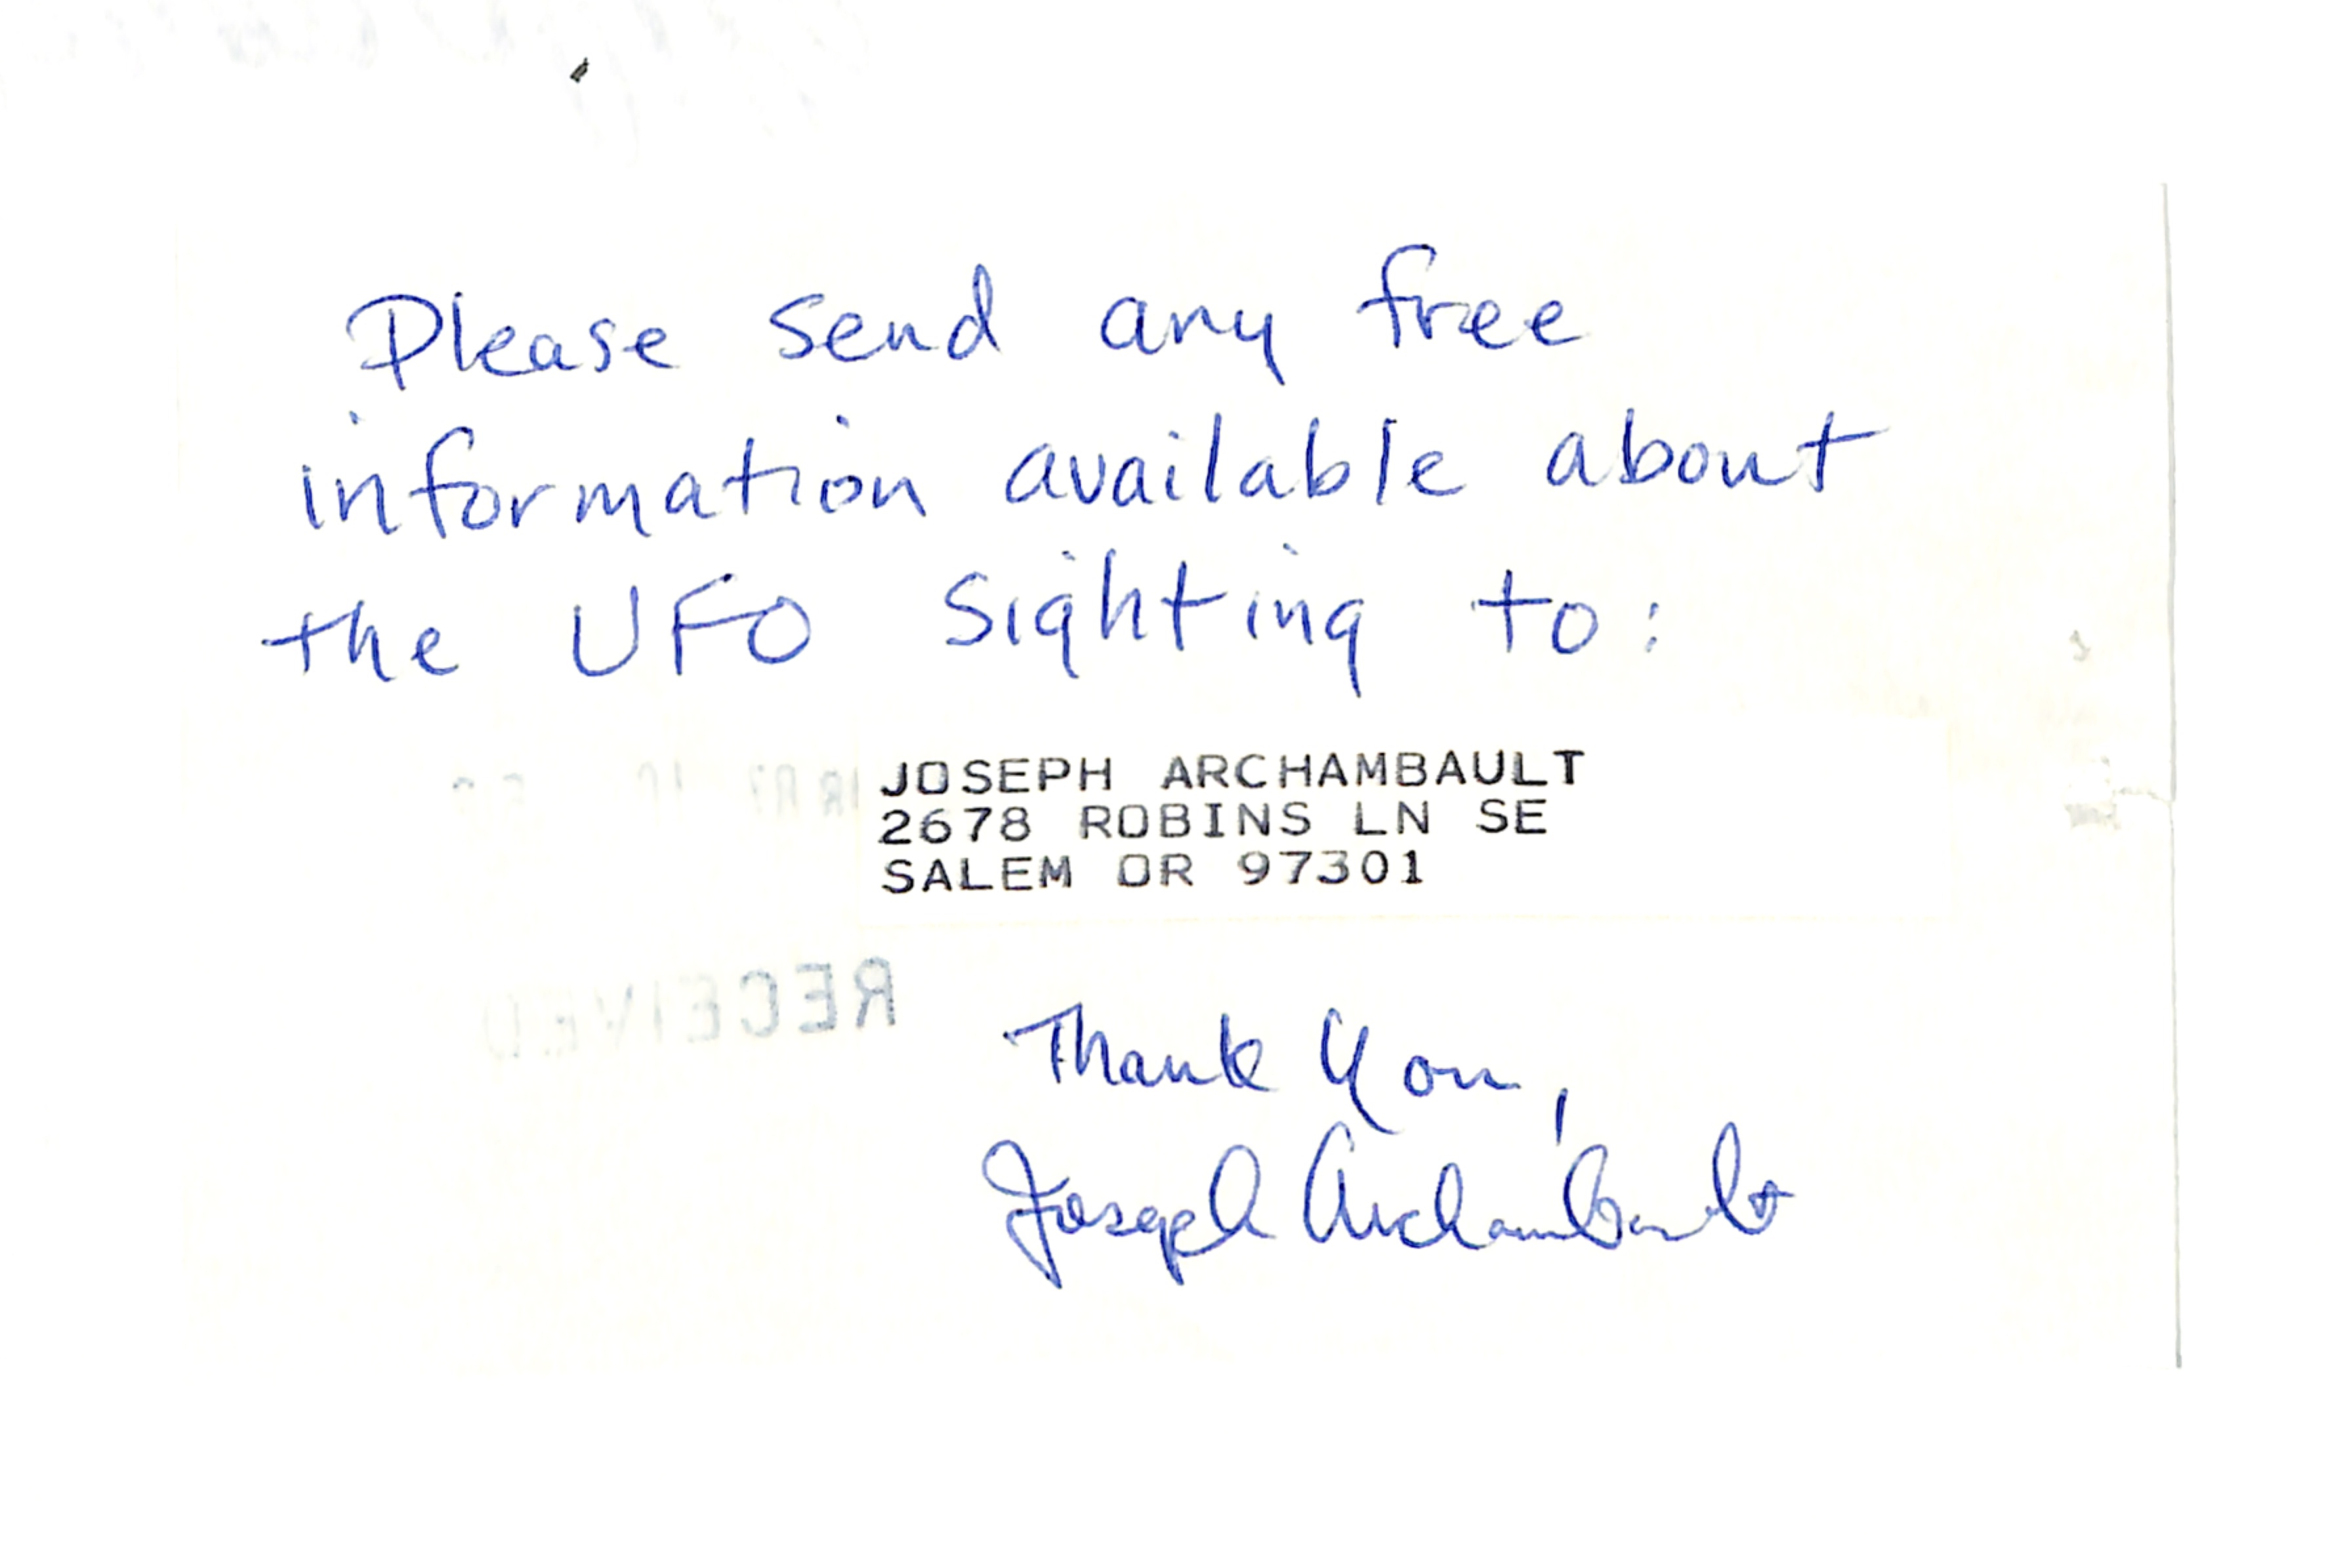 Please send any free
information available about
the UFO sighting to:
JOSEPH ARCHAMBAULT
2678 ROBINS LN SE
SALEM OR 97301
RECEIVED
Thank You,
Joseph Archambault